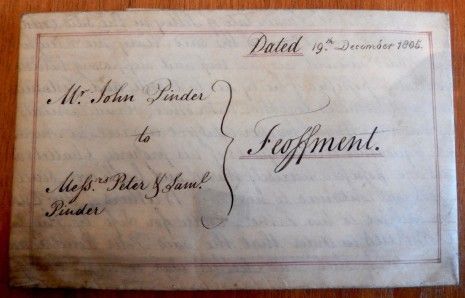 Dated 19.th December 1805.
Mr. John Pinder
to
Messrs Peter & Saml.
Pinder
Feoffment.